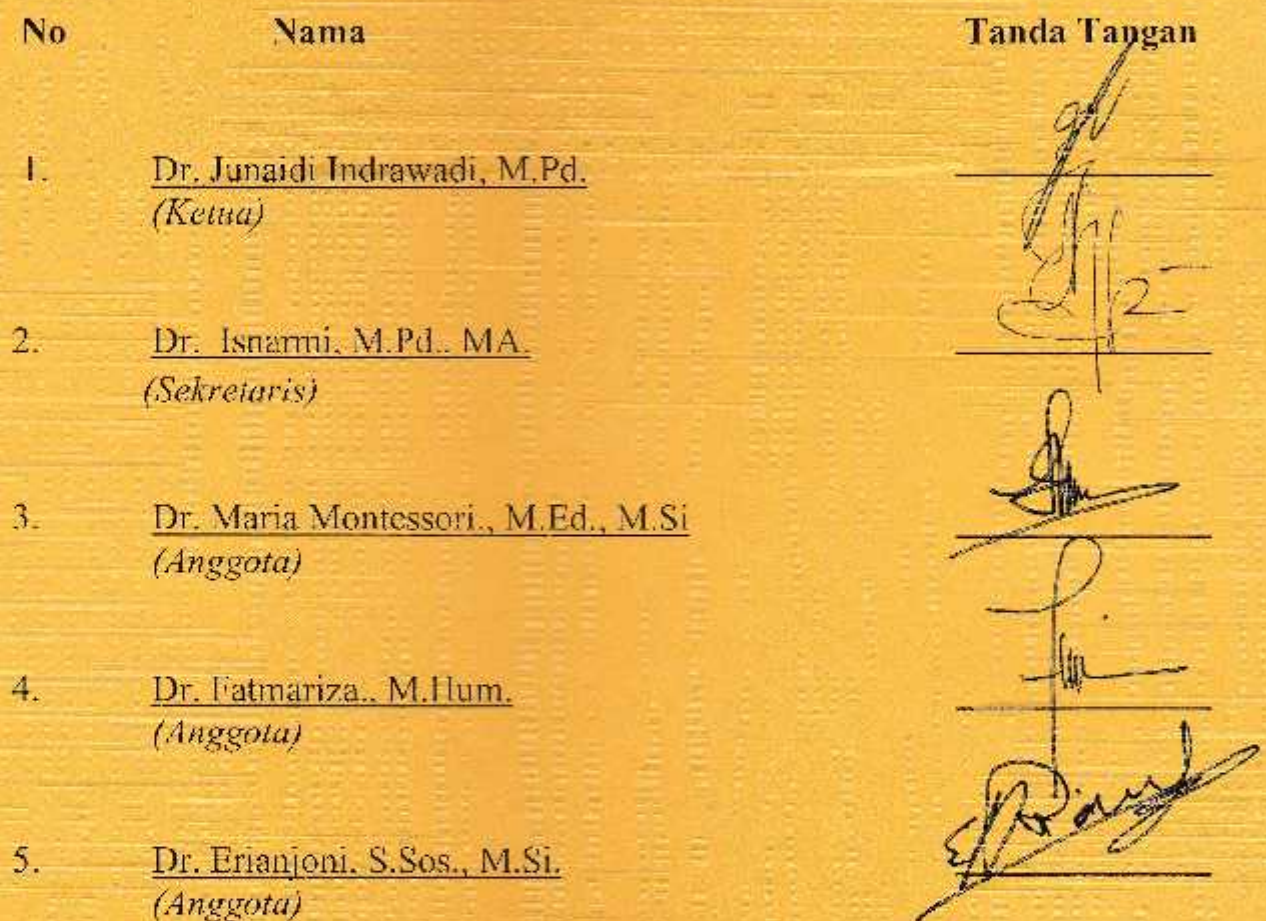 No Nama Tanda Tangan
1. Dr. Junaidi Indrawadi, M.Pd.
(Ketua)
2. Dr. Isnarmi, M.Pd., MA.
(Sekretaris)
3. Dr. Maria Montessori., M.Ed., M.Si
(Anggota)
4. Dr. Fatmariza., M.Hum.
(Anggota)
5. Dr. Erianjoni, S.Sos., M.Si.
(Anggota)